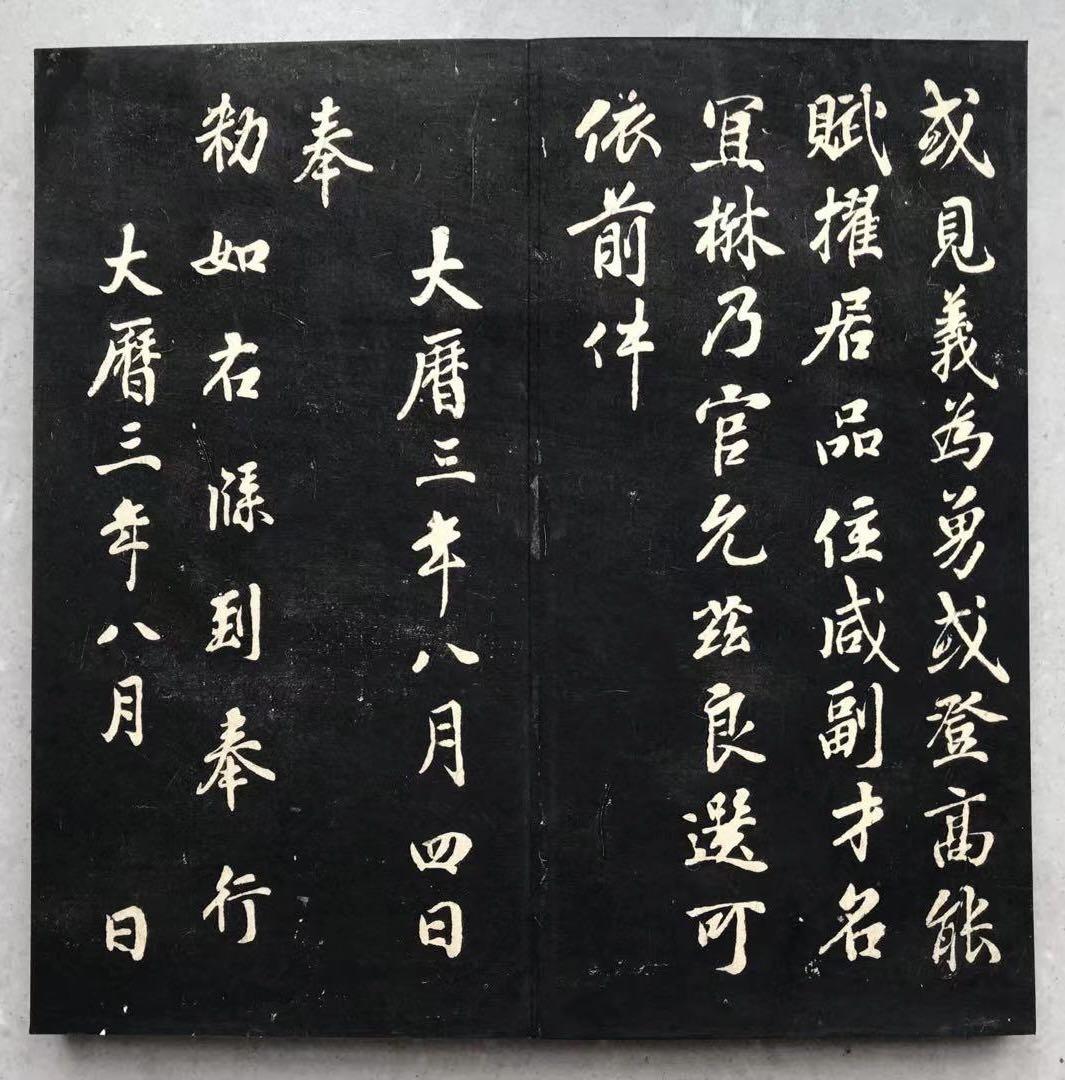 或見義為勇或登髙能
賦擢居品位咸副才名
宜楙乃官允茲良選可
依前件
大曆三年八月四日
奉
勑如右牒到奉行
大曆三年八月日